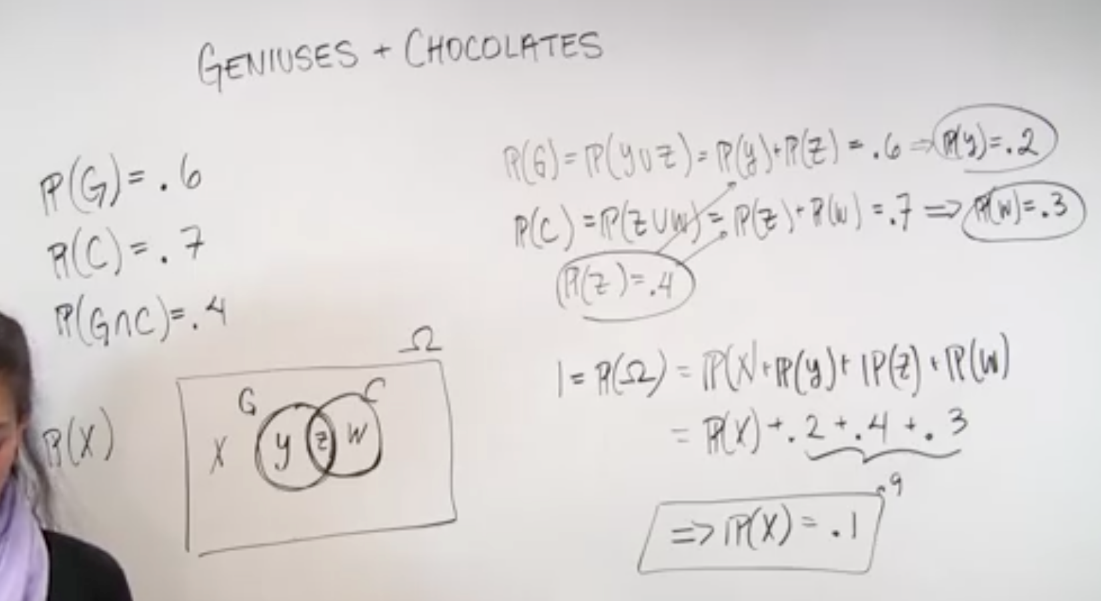 GENIUSES + CHOCOLATES
P(G) = .6
P(C) = .7
P(G∩C) = .4
P(X)
Ω
G C
X Y Z W
P(G) = P(Y∪Z) = P(Y)+P(Z) = .6 ⇒ P(Y)=.2
P(C) = P(Z∪W) = P(Z)+P(W) = .7 ⇒ P(W)=.3
P(Z)=.4
1 = P(Ω) = P(X)+P(Y)+P(Z)+P(W)
= P(X)+.2+.4+.3
.9
⇒ P(X) = .1